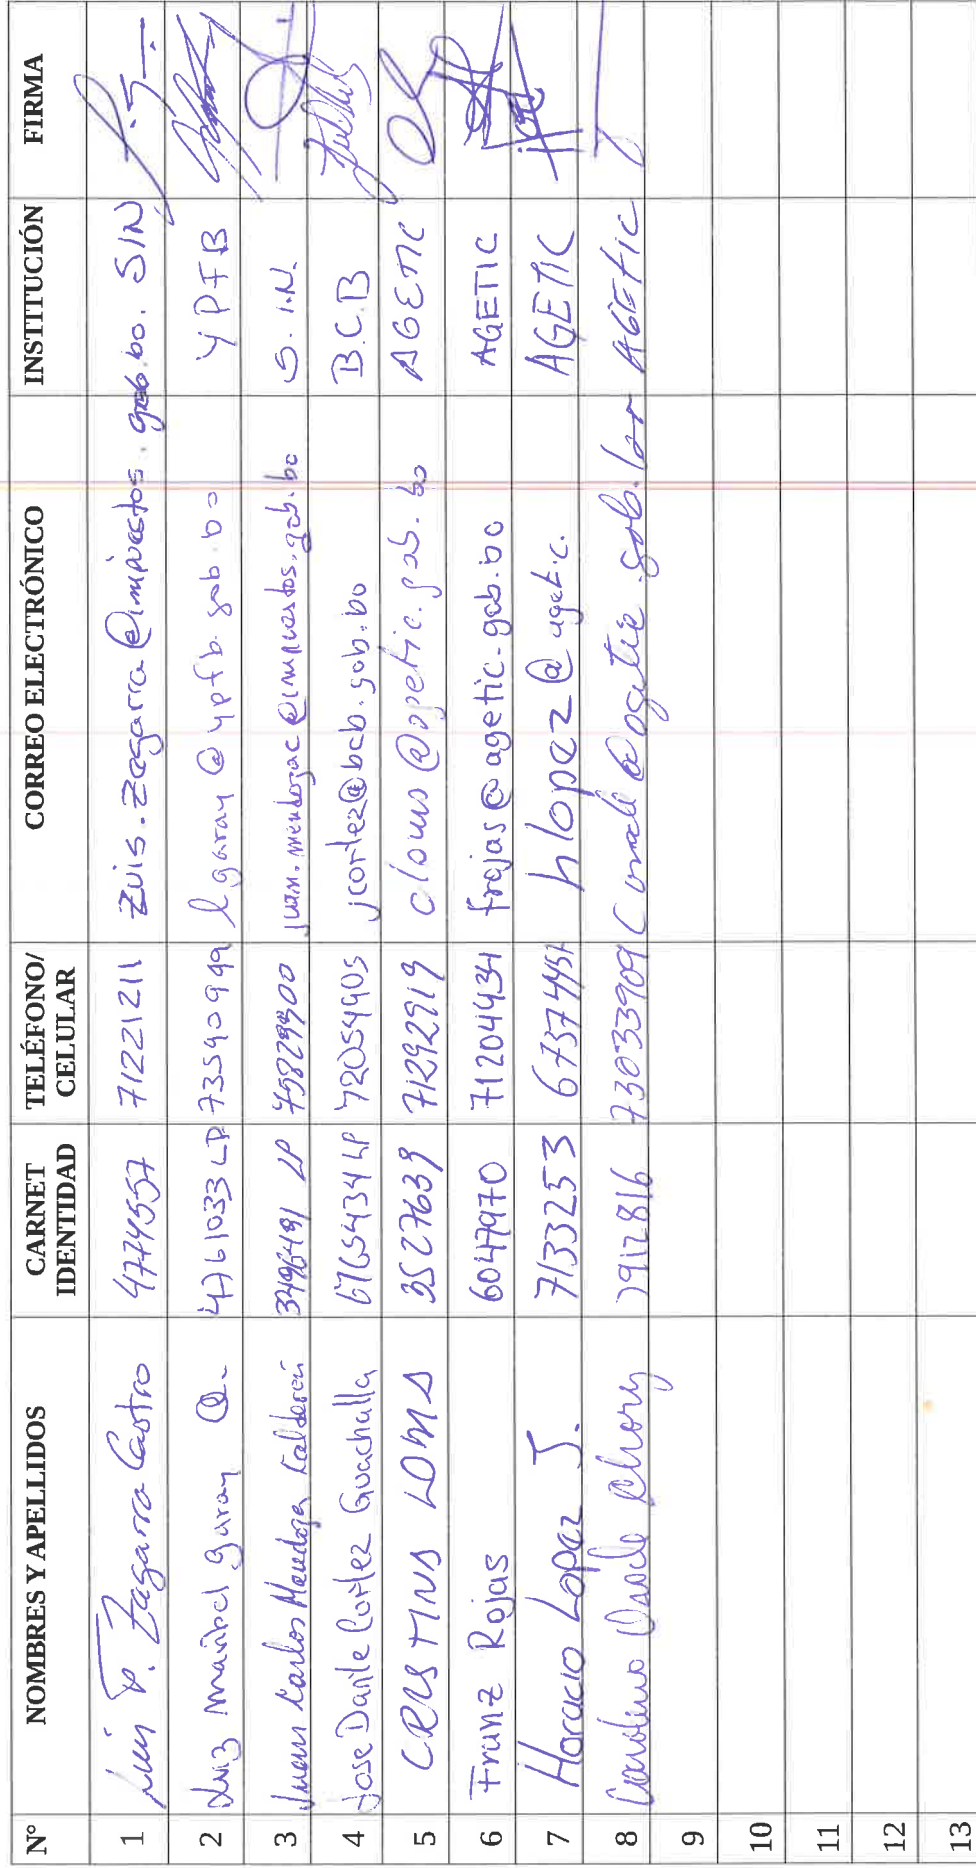 N° NOMBRES Y APELLIDOS CARNET IDENTIDAD TELÉFONO/ CELULAR CORREO ELECTRÓNICO INSTITUCIÓN FIRMA
1 Luis F. Zegarra Castro 4774557 71221211 Luis.Zegarra@impuestos.gob.bo. SIN
2 Luiz Maribel Garay Q. 4761033 LP 73540949 lgaray@ypfb.gob.bo YPFB
3 Juan Carlos Mendoza Calderón 3496491 LP juan.mendozac@impuestos.gob.bo S.I.N.
4 Jose Dante Cortez Guachalla 6765434 LP 72054905 jcortez@bcb.gob.bo B.C.B
5 3527639 71292919 AGETIC
6 Franz Rojas 6047970 71204434 frojas@agetic.gob.bo AGETIC
7 Horacio Lopez J. 7133253 67374457 hlopez@agetic. AGETIC
8 7912816 73033909 AGETIC
9
10
11
12
13